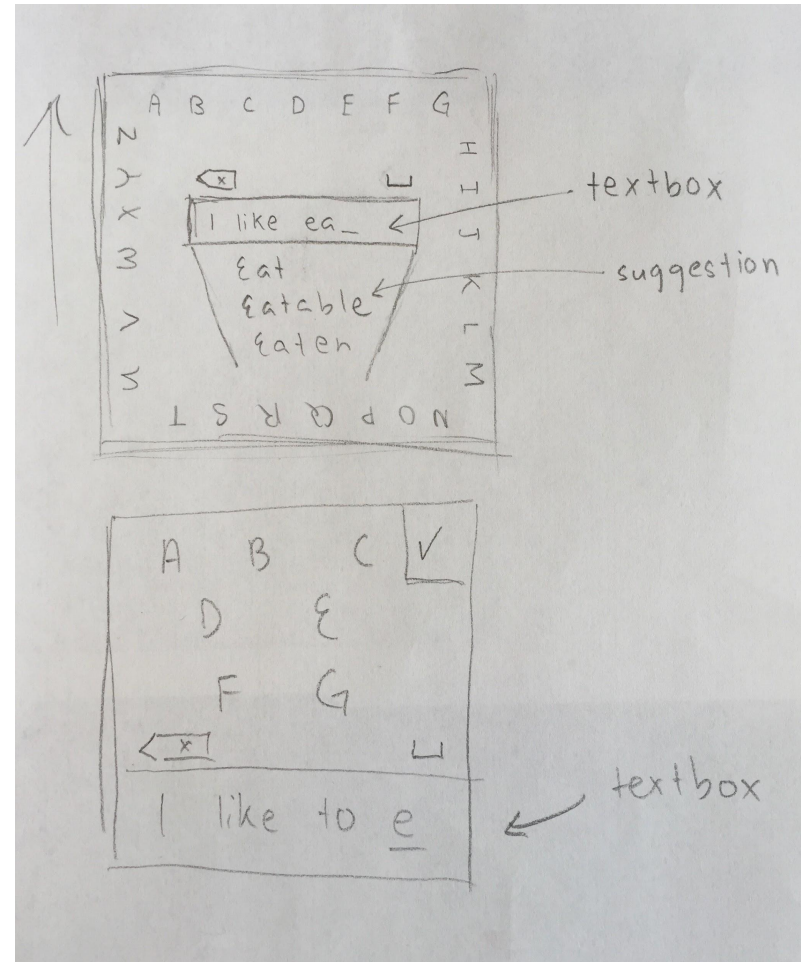 A B C D E F G
H I J K L M
N O P Q R S T
U V W X Y Z
x
I like ea_
textbox
Eat
Eatable
Eaten
suggestion
A B C ✓
D E
F G
x
I like to e
textbox